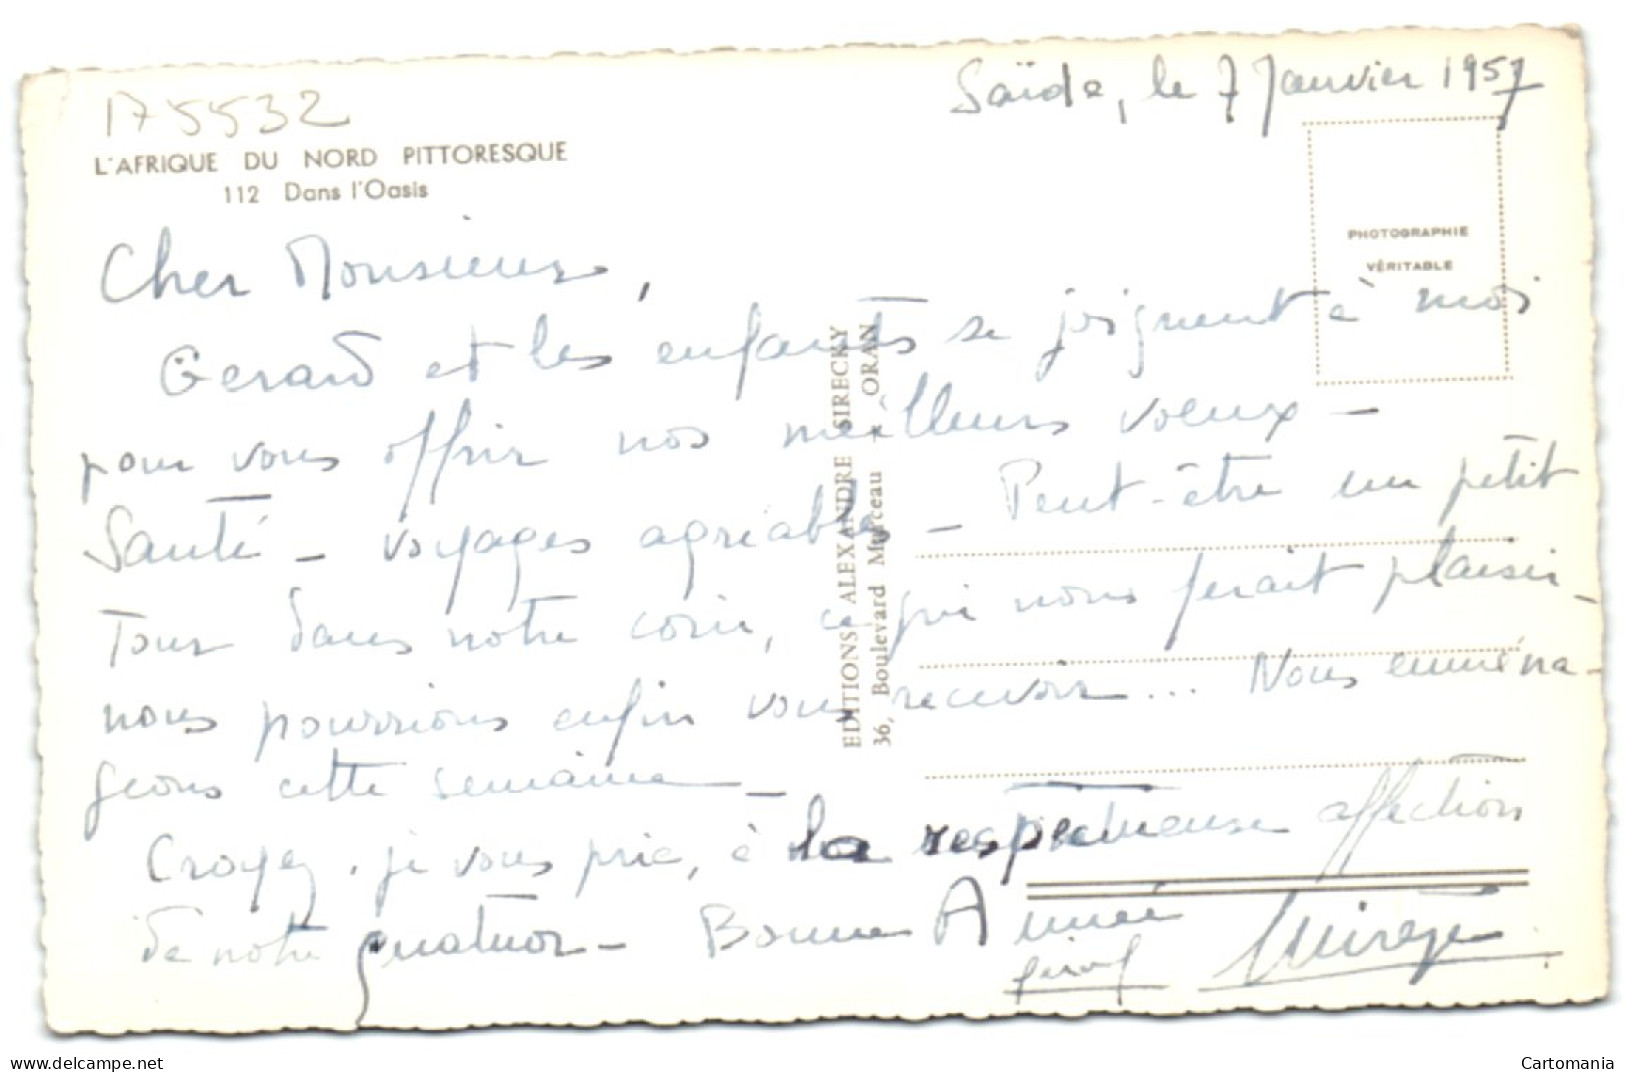 175532
Saïda, le 7 Janvier 1957
L'AFRIQUE DU NORD PITTORESQUE
112 Dans l'Oasis
PHOTOGRAPHIE
VÉRITABLE
Cher Monsieur,
Gerard et les enfants se joignent à moi
pour vous offrir nos meilleurs voeux -
Santé - voyages agréables - Peut-être un petit
Tour dans notre coin, ce qui nous ferait plaisir -
nous pourrions enfin vous recevoir... Nous emména-
geons cette semaine -
Croyez, je vous prie, à la respectueuse affection
de notre quatuor - Bonne Année
EDITIONS ALEXANDRE SIRECKY
36, Boulevard Marceau - ORAN
Cartomania